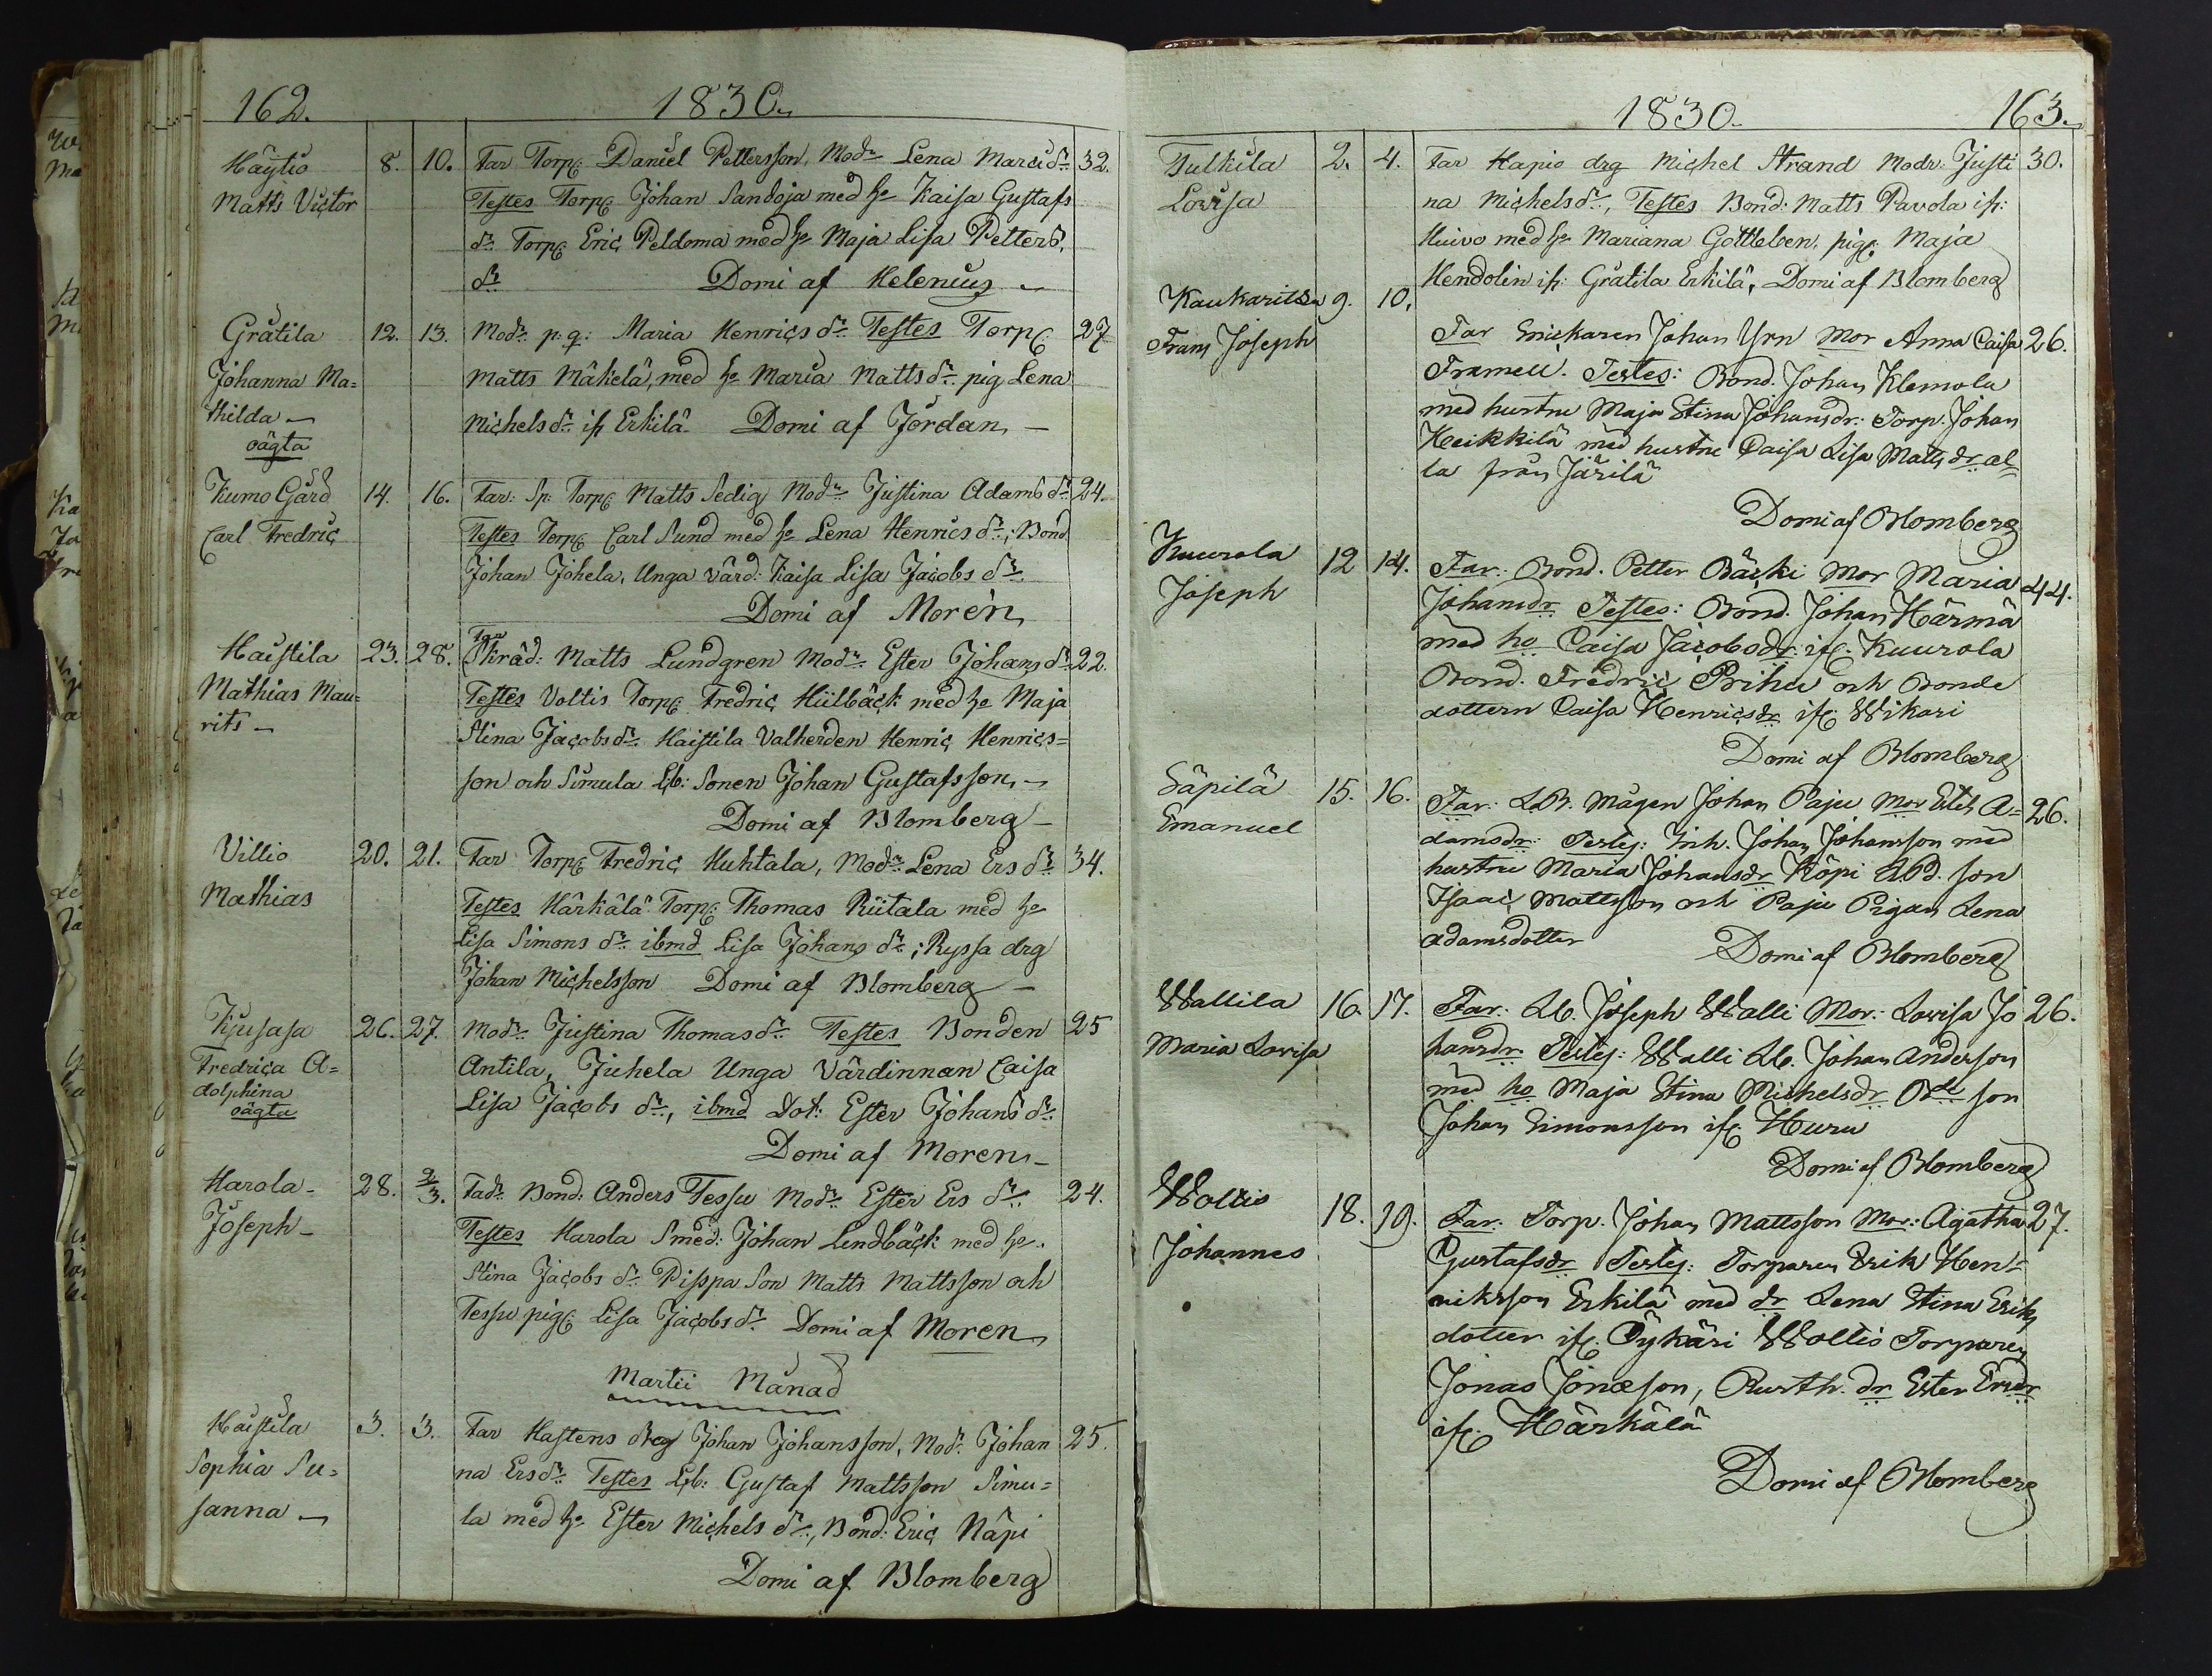 162.
1830.
Häytiö 8. 10. Far Torp: Daniel Pettersson, Modr Lena Marcidr 32.
Matts Victor Testes Torp: Johan Sandoja med ho Kaisa Gustafs
dr Torp: Eric Peldoma med ho Maja Lisa Petters
dr Domi af Helenius
Gråtila 12. 13. Modr p. q: Maria Henrics dr Testes Torp: 27
Johanna Ma= Matts Mäkelä, med ho Maria Mattsdr pig Lena
thilda Michelsdr ifr Erkilä Domi af Jordan
oägta
Kumo Gård 14. 16. Far: Sp: Torp: Matts Sedig Modr Justina Adamsdr 24.
Carl Fredric Testes Torp: Carl Sund med ho Lena Henrics dr; Bond
Johan Johela, Unga värd: Kaisa Lisa Jacobs dr
Domi af Morén
Far
Haistila 23. 28. Skräd: Matts Lundgren Modr Ester Johansdr 22.
Mathias Mau= Testes Voltis Torp: Fredric Hiilbäck med ho Maja
rits Stina Jacobsdr Haistila Valherden Henric Henrics=
son och Simula Lb: Sonen Johan Gustafsson,
Domi af Blomberg
Villio 20. 21. Far Torp: Fredric Huhtala, Modr Lena Ers dr 34.
Mathias Testes Härkälä Torp: Thomas Riitala med ho
Lisa Simons dr ibmd Lisa Johans dr; Ryssa drg
Johan Michelsson Domi af Blomberg
Kjusasa 26. 27. Modr Justina Thomasdr Testes Bonden 25
Fredrica A= Antila, Juhela Unga Värdinnan Caisa
dolphina Lisa Jacobs dr, ibmd Dot: Ester Johans dr
oägta Domi af Moren
Harola 28. 2/3. Fadr Bond: Anders Tessu Modr Ester Ers dr 24.
Joseph Testes Harola Smed: Johan Lindbäck med ho
Stina Jacobs dr Pisspa Son Matts Mattsson och
Tessu pig: Lisa Jacobsdr Domi af Moren
Martii Månad
Haistila 3. 3. Far Hastens dreg Johan Johansson, Modr Johan 25.
Sophia Su= na Ersdr Testes Lb: Gustaf Mattsson Simu=
sanna la med ho Ester Michels dr, Bond: Eric Näpi
Domi af Blomberg
1830.
163.
Tulkila 2. 4. Far Hapio drg Michel Strand Modr: Justi 30.
Lovisa na Michelsdr, Testes Bond: Matts Pavola ifr:
Huivo med ho Mariana Gottleben, pig: Maja
Hendolin ifr: Gråtila Erkilä, Domi af Blomberg
Kaukaritsa 9. 10. Far Snickaren Johan Yrn Mor Anna Caisa 26.
Frans Joseph Framell. Testes: Bond. Johan Klemola
med hustru Maja Stina Johansdr: Torp. Johan
Heikkilä med hustru Caisa Lisa Mattsdr al
la från Järilä
Domi af Blomberg
Kuurola 12 14. Far: Bond. Petter Bäcki Mor Maria 44.
Joseph Johansdr. Testes: Bond. Johan Härmä
med ho Caisa Jacobsdr ifr. Kuurola
Bond. Fredric Prihu och Bonde
dottern Caisa Henricsdr ifr. Wikari
Domi af Blomberg
Säpilä 15. 16. Far: L.B. Mågen Johan Paju Mor Ester A= 26.
Emanuel damsdr: Testes: Inh. Johan Johansson med
hustru Maria Johansdr Köpi Bd. son
Isaac Mattsson och Paju Pigan Lena
Adamsdotter Domi af Blomberg
Wallila 16. 17. Far: Lb. Joseph Walli Mor: Lovisa Jo 26.
Maria Lovisa hansdr. Testes: Walli Lb. Johan Anderson
med ho Maja Stina Michelsdr Bde son
Johan Simonsson ifr. Huru
Domi af Blomberg
Woltis 18. 19. Far: Torp. Johan Mattsson Mor: Agatha 27.
Johannes Gustafsdr Testes: Torparen Erik Hen=
riksson Erkilä med dr Lena Stina Eriks
dotter ifr. Pykäri Woltis Torparen
Jonas Jonæson, Rusth. dr Ester Ersdr
ifr. Härkälä
Domi af Blomberg